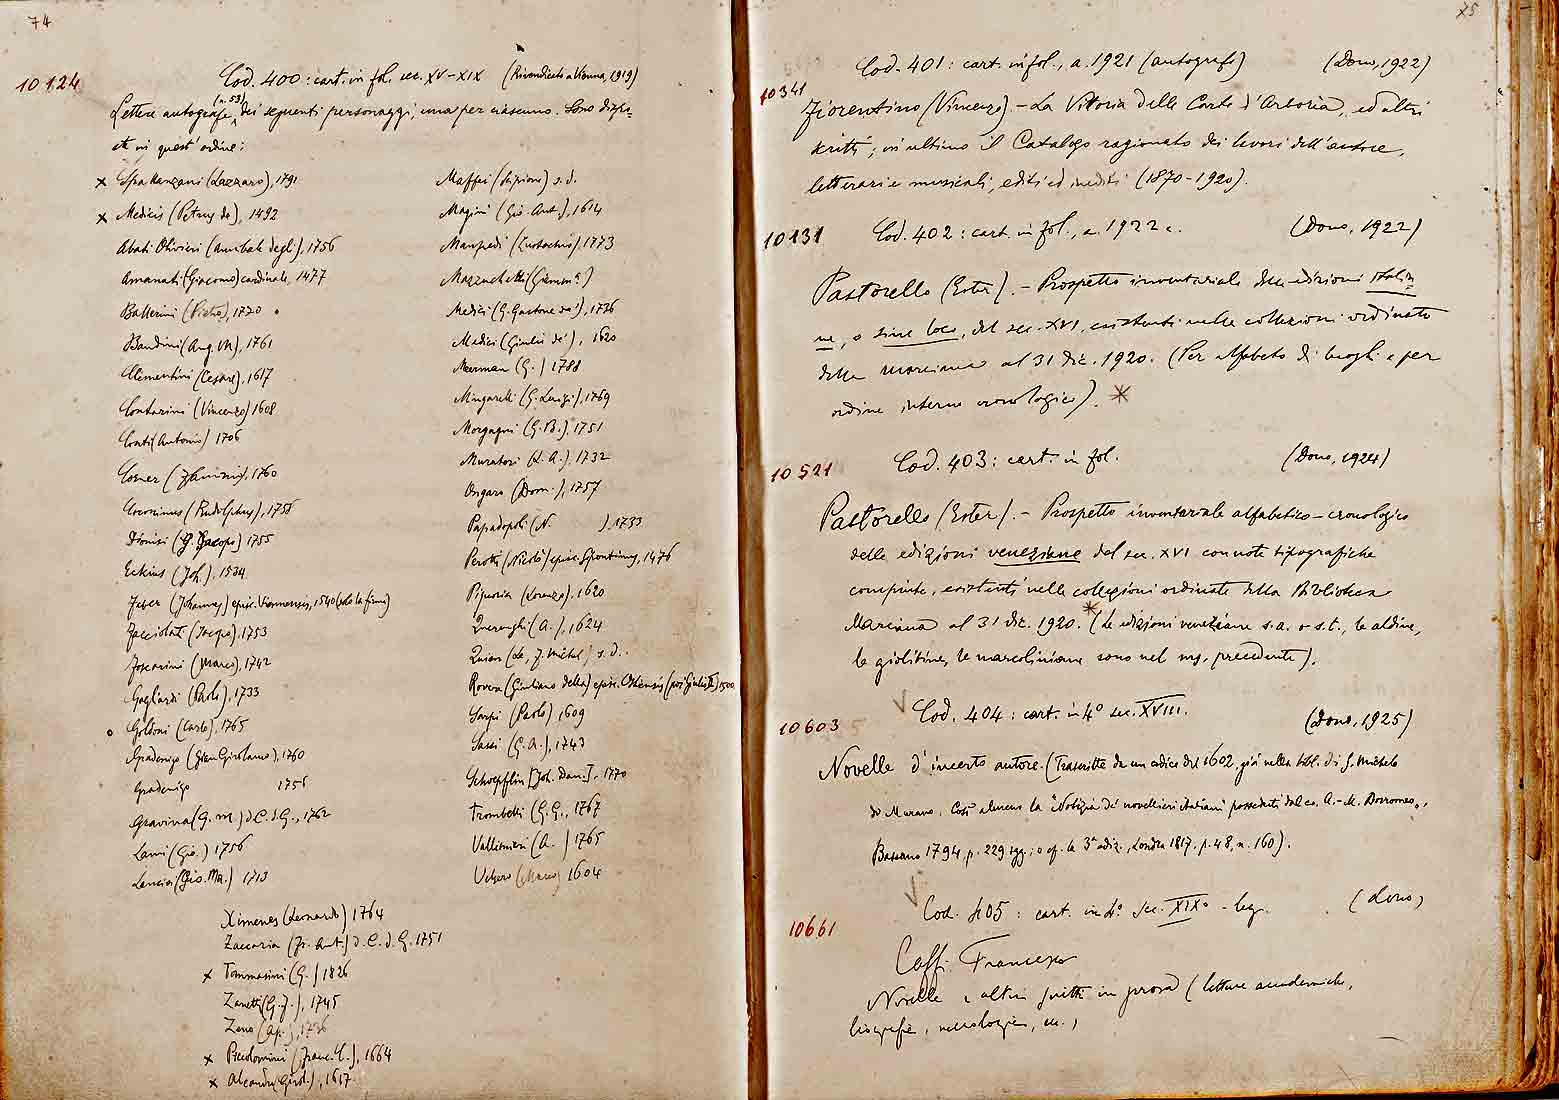 74
10124 Cod. 400: cart. in fol. sec. XV-XIX (Rivendicato a Vienna, 1919)
Lettere autografe (n. 53) dei seguenti personaggi, una per ciascuno. Sono dispo-
ste in quest'ordine:
x Spallanzani (Lazzaro), 1791
x Medicis (Petrus de), 1492
Abati Olivieri (Annibale degli), 1756
Amanati (Giacomo) cardinale, 1477
Ballerini (Pietro), 1720
Bandini (Ang. M), 1761
Clementini (Cesare), 1617
Contarini (Vincenzo) 1608
Conti (Antonio) 1706
Corner (Flaminio), 1760
Coroninus (Rudolphus), 1758
Dionisi (G. Jacopo) 1755
Eckius (Joh.), 1534
Faber (Johannes) episc. Viennensis, 1540 (solo la firma)
Facciolati (Jacopo), 1753
Foscarini (Marco), 1742
Gagliardi (Paolo), 1733
o Goldoni (Carlo), 1765
Gradenigo (Gian Girolamo), 1760
Gradenigo 1756
Gravina (G. M.) d. C. d. G., 1762
Lami (Gio.) 1756
Lancisi (Gio. Ma.) 1713
Maffei (Scipione) s. d.
Magini (Gio. Ant.), 1614
Manfredi (Eustachio), 1773
Mazzuchelli (Giammª.)
Medici (G. Gastone de'), 1726
Medici (Giulio de'), 1620
Meerman (G.) 1788
Mingarelli (G. Luigi), 1769
Morgagni (G. B.), 1751
Muratori (L. A.), 1732
Ongaro (Dom.), 1757
Papadopoli (N. ), 1733
Perotti (Nicolò) episc. Sipontinus, 1476
Pignoria (Lorenzo), 1620
Querenghi (A.), 1624
Quien (Le, J. Michel) s. d.
Rovere (Giuliano della) episc. Ostiensis (poi Giulio II) 1500
Sarpi (Paolo) 1609
Sassi (G. A.), 1743
Schoepflin [Joh. Dan.], 1770
Trombelli (G. G., 1767
Vallisnieri (A. ) 1765
Velsero (Marco) 1604
Ximenes (Leonardo) 1764
Zaccaria (Fr. Ant.) d. C. d. G. 1751
x Tommasini (G.) 1826
Zanetti (G. F.), 1745
Zeno (Ap.), 1726
x Piccolomini (Franc. ), 1664
x Aleandri (Girol.), 1617
75
10341 Cod. 401: cart. in fol., a. 1921 (autografo) (Dono, 1922)
Fiorentino (Vincenzo). - La Vittoria delle Carte d'Asteria, ed altri
scritti; in ultimo il Catalogo ragionato dei lavori dell'autore,
letterari e musicali, editi ed inediti (1870-1920).
10131 Cod. 402: cart. in fol., a. 1922 c. (Dono, 1922)
Pastorello (Ester). - Prospetto inventariale delle edizioni italia-
ne, o sine loco, del sec. XVI, esistenti nelle collezioni ordinate
della Marciana al 31 dic. 1920. (Per alfabeto di luoghi e per
ordine interno cronologico). *
10521 Cod. 403: cart. in fol. (Dono, 1924)
Pastorello (Ester). - Prospetto inventariale alfabetico-cronologico
delle edizioni veneziane del sec. XVI con note tipografiche
compiute, esistenti nelle collezioni ordinate della Biblioteca
Marciana al 31 dic. 1920. * (Le edizioni veneziane s. a. o s. t., le aldine,
le giolitine, le marcoliniane sono nel ms. precedente).
10603 Cod. 404: cart. in 4º sec. XVIII. (Dono, 1925)
Novelle d'incerto autore. (Trascritte da un codice del 1602, già nella bibl. di S. Michele
di Murano. Così almeno la "Notizia de' novellieri italiani posseduti dal co. A.-M. Borromeo",
Bassano 1794, p. 229 sgg.; e cf. la 3ª ediz., Londra 1817, p. 48, n. 160).
10661 Cod. 405: cart. in 4º sec. XIXº - leg. (dono)
Caffi Francesco
Novelle e altri scritti in prosa (letture accademiche,
biografie, necrologie, ecc.)